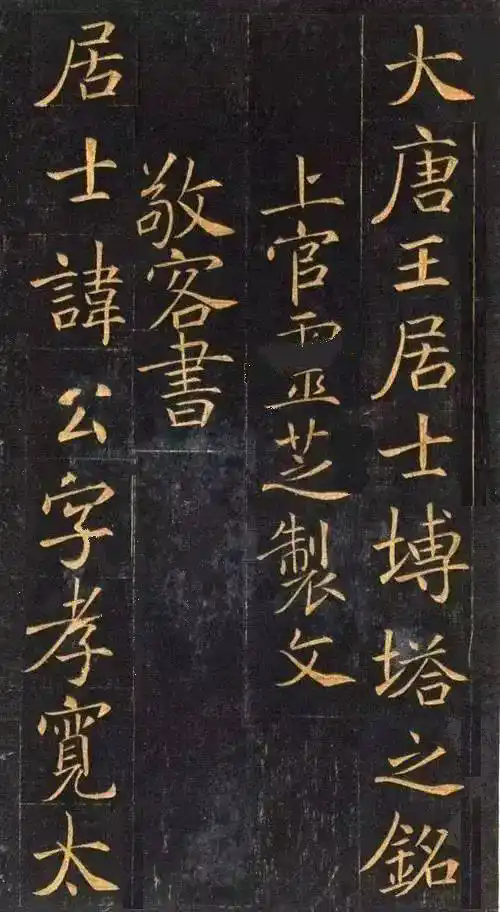 大唐王居士塼塔之銘
上官靈芝製文
敬客書
居士諱公字孝寬太